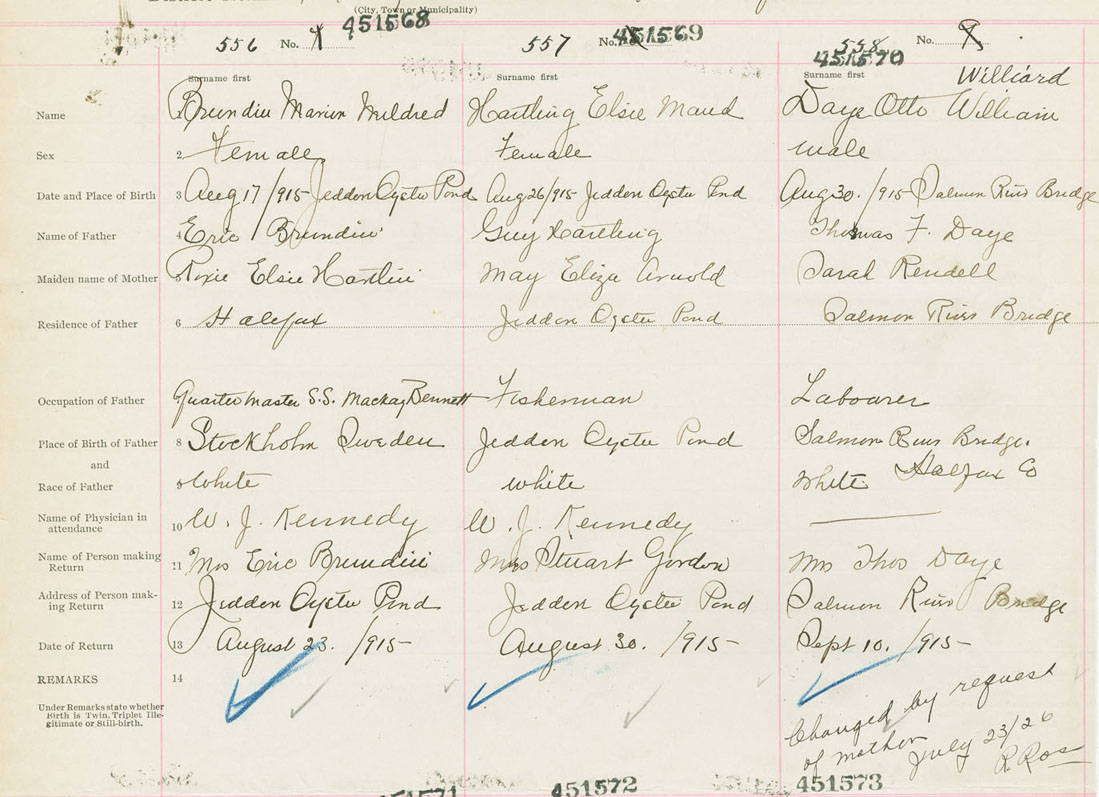 (City, Town or Municipality)
451568
556 No.
557 No. 451569
558 No. 9
451570
Surname first
Surname first
Surname first
Williard
Name
Brundin Marion Mildred
Hartling Elsie Maud
Daye Otto William
Sex
2 Female
Female
male
Date and Place of Birth
3 Aug 17/915 Jeddon Oyster Pond
Aug 26/915 Jeddon Oyster Pnd
Aug 30. /915 Salmon River Bridge
Name of Father
4 Eric Brundin
Guy Hartling
Thomas F. Daye
Maiden name of Mother
Roxie Elsie Hartlin
May Eliza Arnold
Sarah Rendell
Residence of Father
6 Halifax
Jeddon Oyster Pond
Salmon River Bridge
Occupation of Father
Quartermaster S.S. Mackay Bennett
Fisherman
Labourer
Place of Birth of Father
8 Stockholm Sweden
Jeddon Oyster Pond
Salmon River Bridge.
and
Halifax Co
Race of Father
White
white
White
Name of Physician in
attendance
10 W. J. Kennedy
W. J. Kennedy
Name of Person making
Return
11 Mrs Eric Brundin
Mrs Stuart Gordon
Mrs Thos Daye
Address of Person mak-
ing Return
12 Jeddon Oyster Pond
Jeddon Oyster Pond
Salmon River Bridge
Date of Return
13 August 23. /915
August 30. /915
Sept 10. /915
REMARKS
14
Under Remarks state whether
Birth is Twin, Triplet Ille-
gitimate or Still-birth.
Changed by request
of mother July 23/26
R Ross
451571
451572
451573